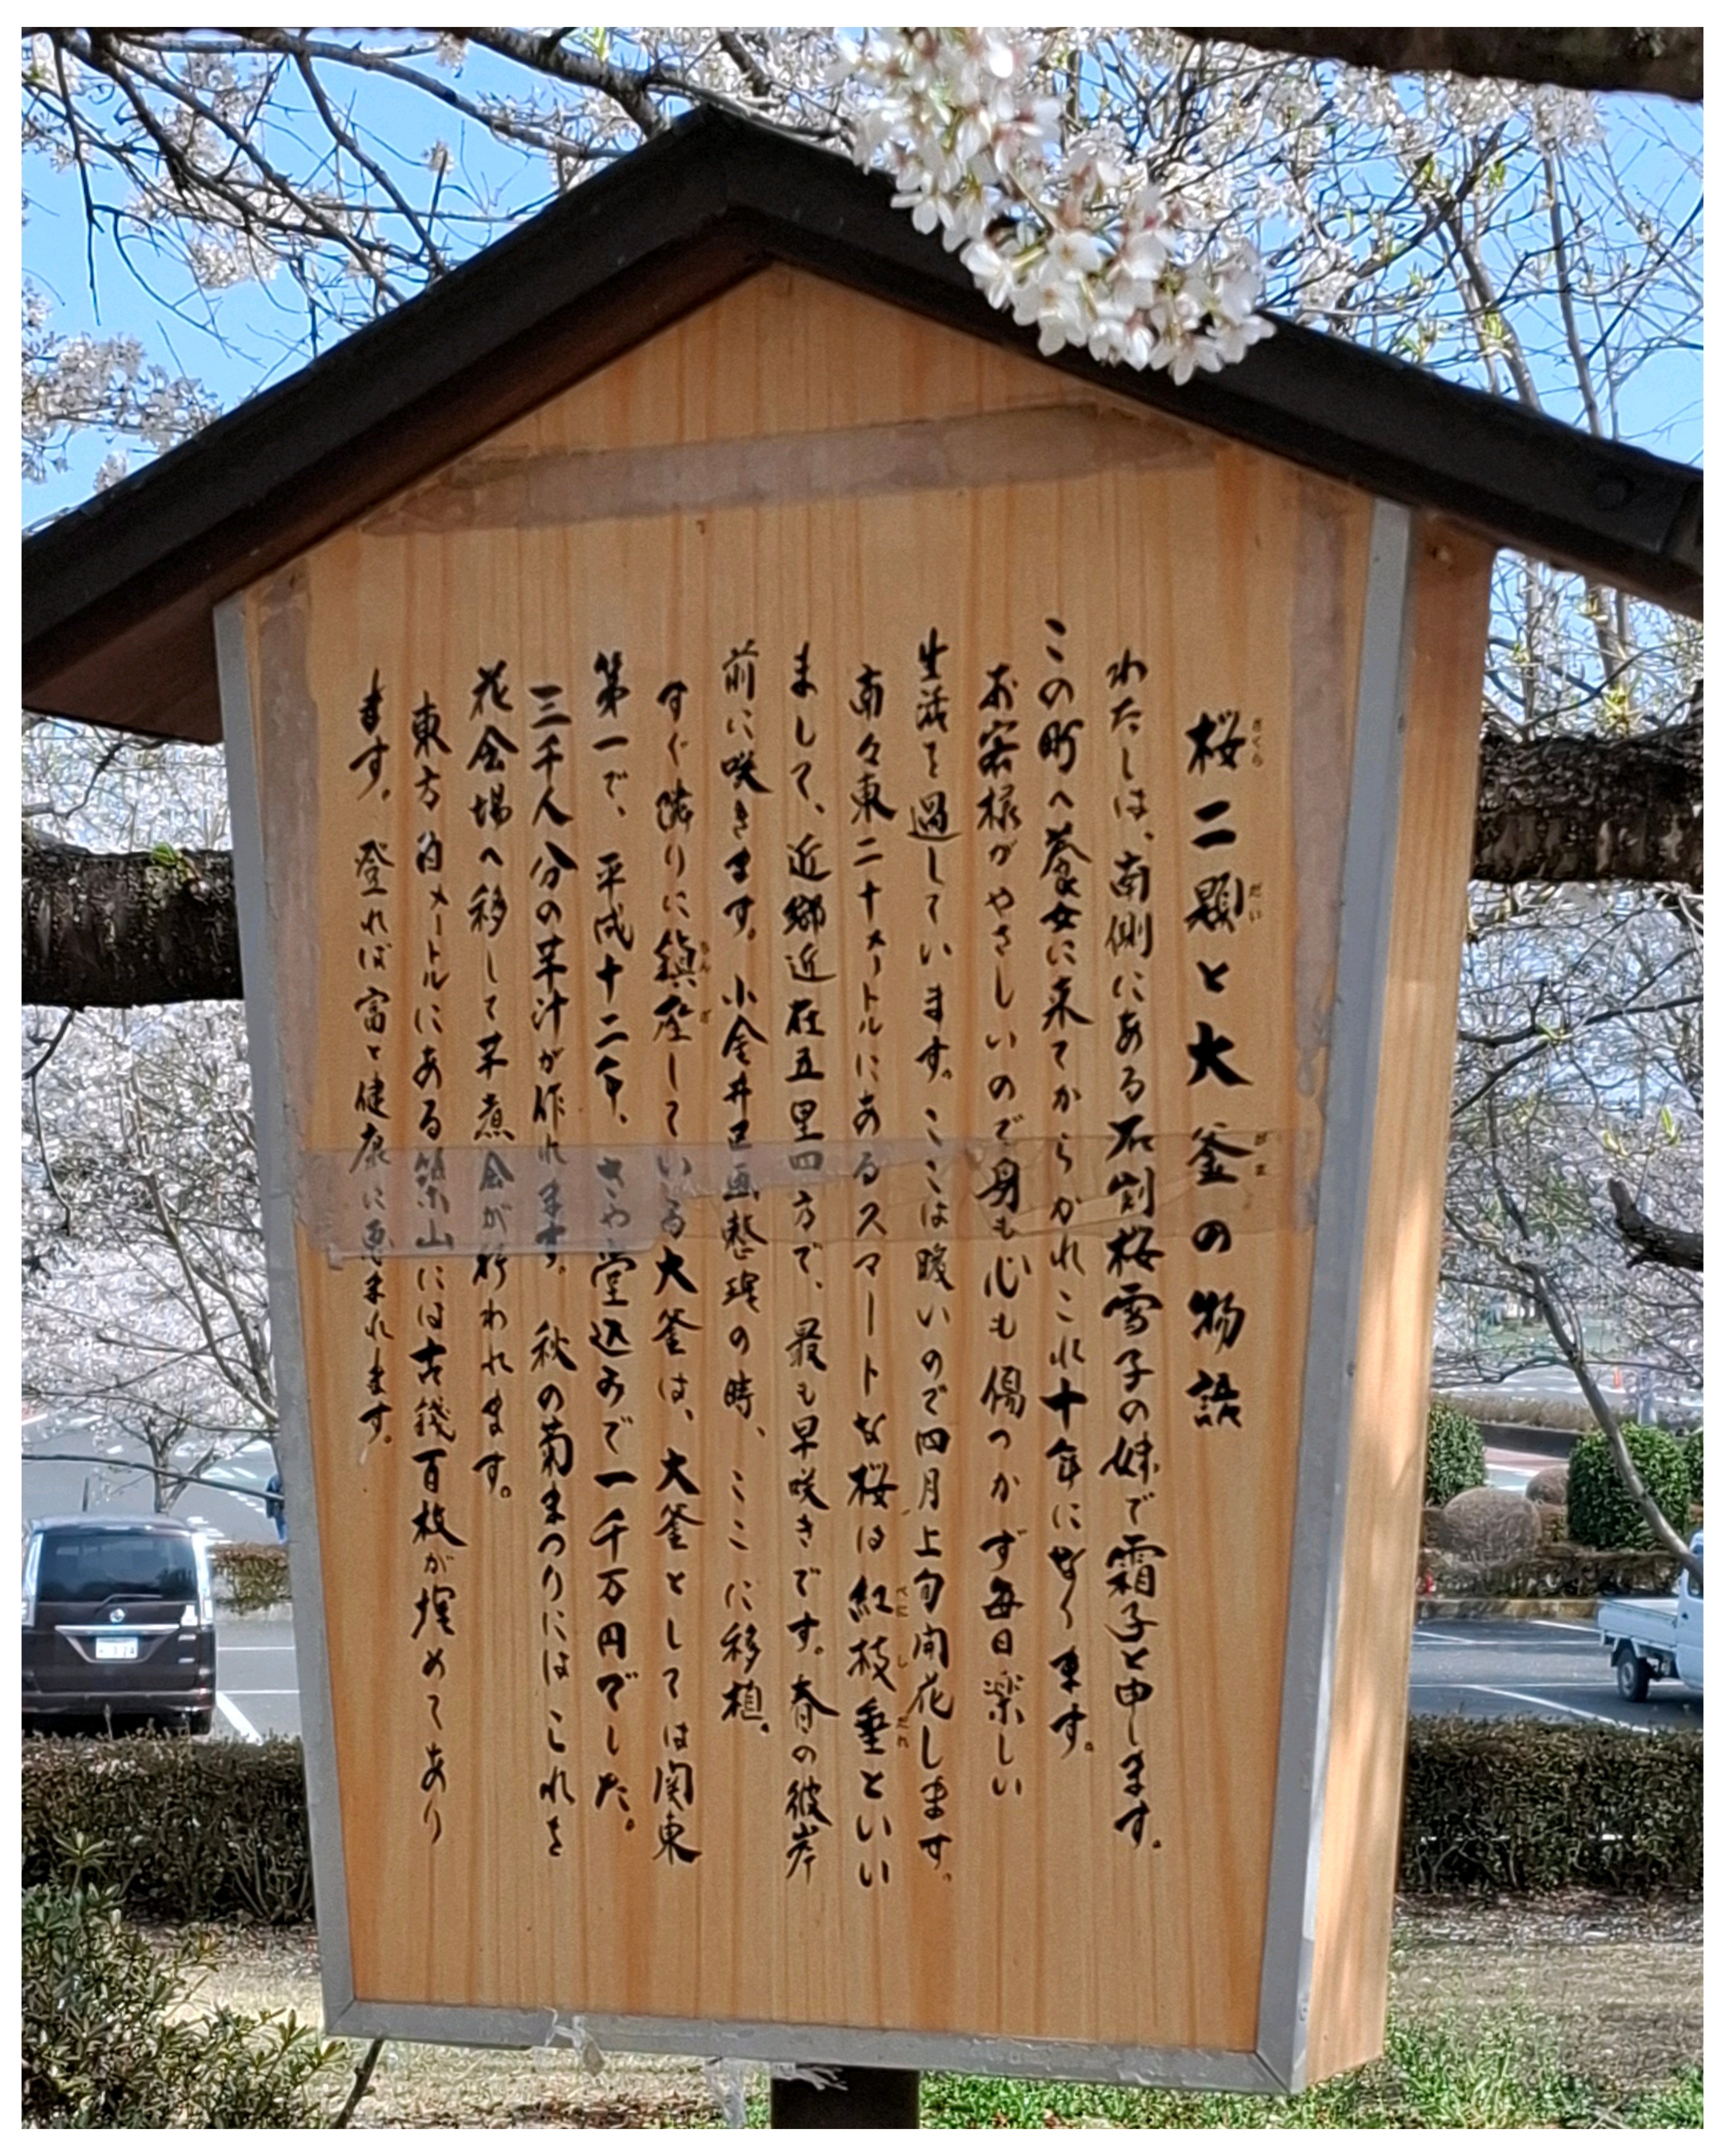 桜二題と大釜の物語
わたしは、南側にある石割桜雪子の妹で霜子と申します。
この町へ養女に来てからかれこれ十年になります。
お客様がやさしいので身も心も傷つかず毎日楽しい
生活を過しています。ここは暖いので四月上旬開花します。
南々東二十メートルにあるスマートな桜は紅枝垂といい
まして、近郷近在五里四方で、最も早咲きです。春の彼岸
前に咲きます。小金井区画整理の時、ここに移植。
すぐ隣りに鎮座している大釜は、大釜としては関東
第一で、平成十二年、さや堂込みで一千万円でした。
三千人分の芋汁が作れます。秋の菊まつりにはこれを
花会場へ移して芋煮会が行われます。
東方百メートルにある築山には古銭百枚が埋めてあり
ます。登れば富と健康に恵まれます。
さくら
だい
がま
べにしだれ
ちんざ